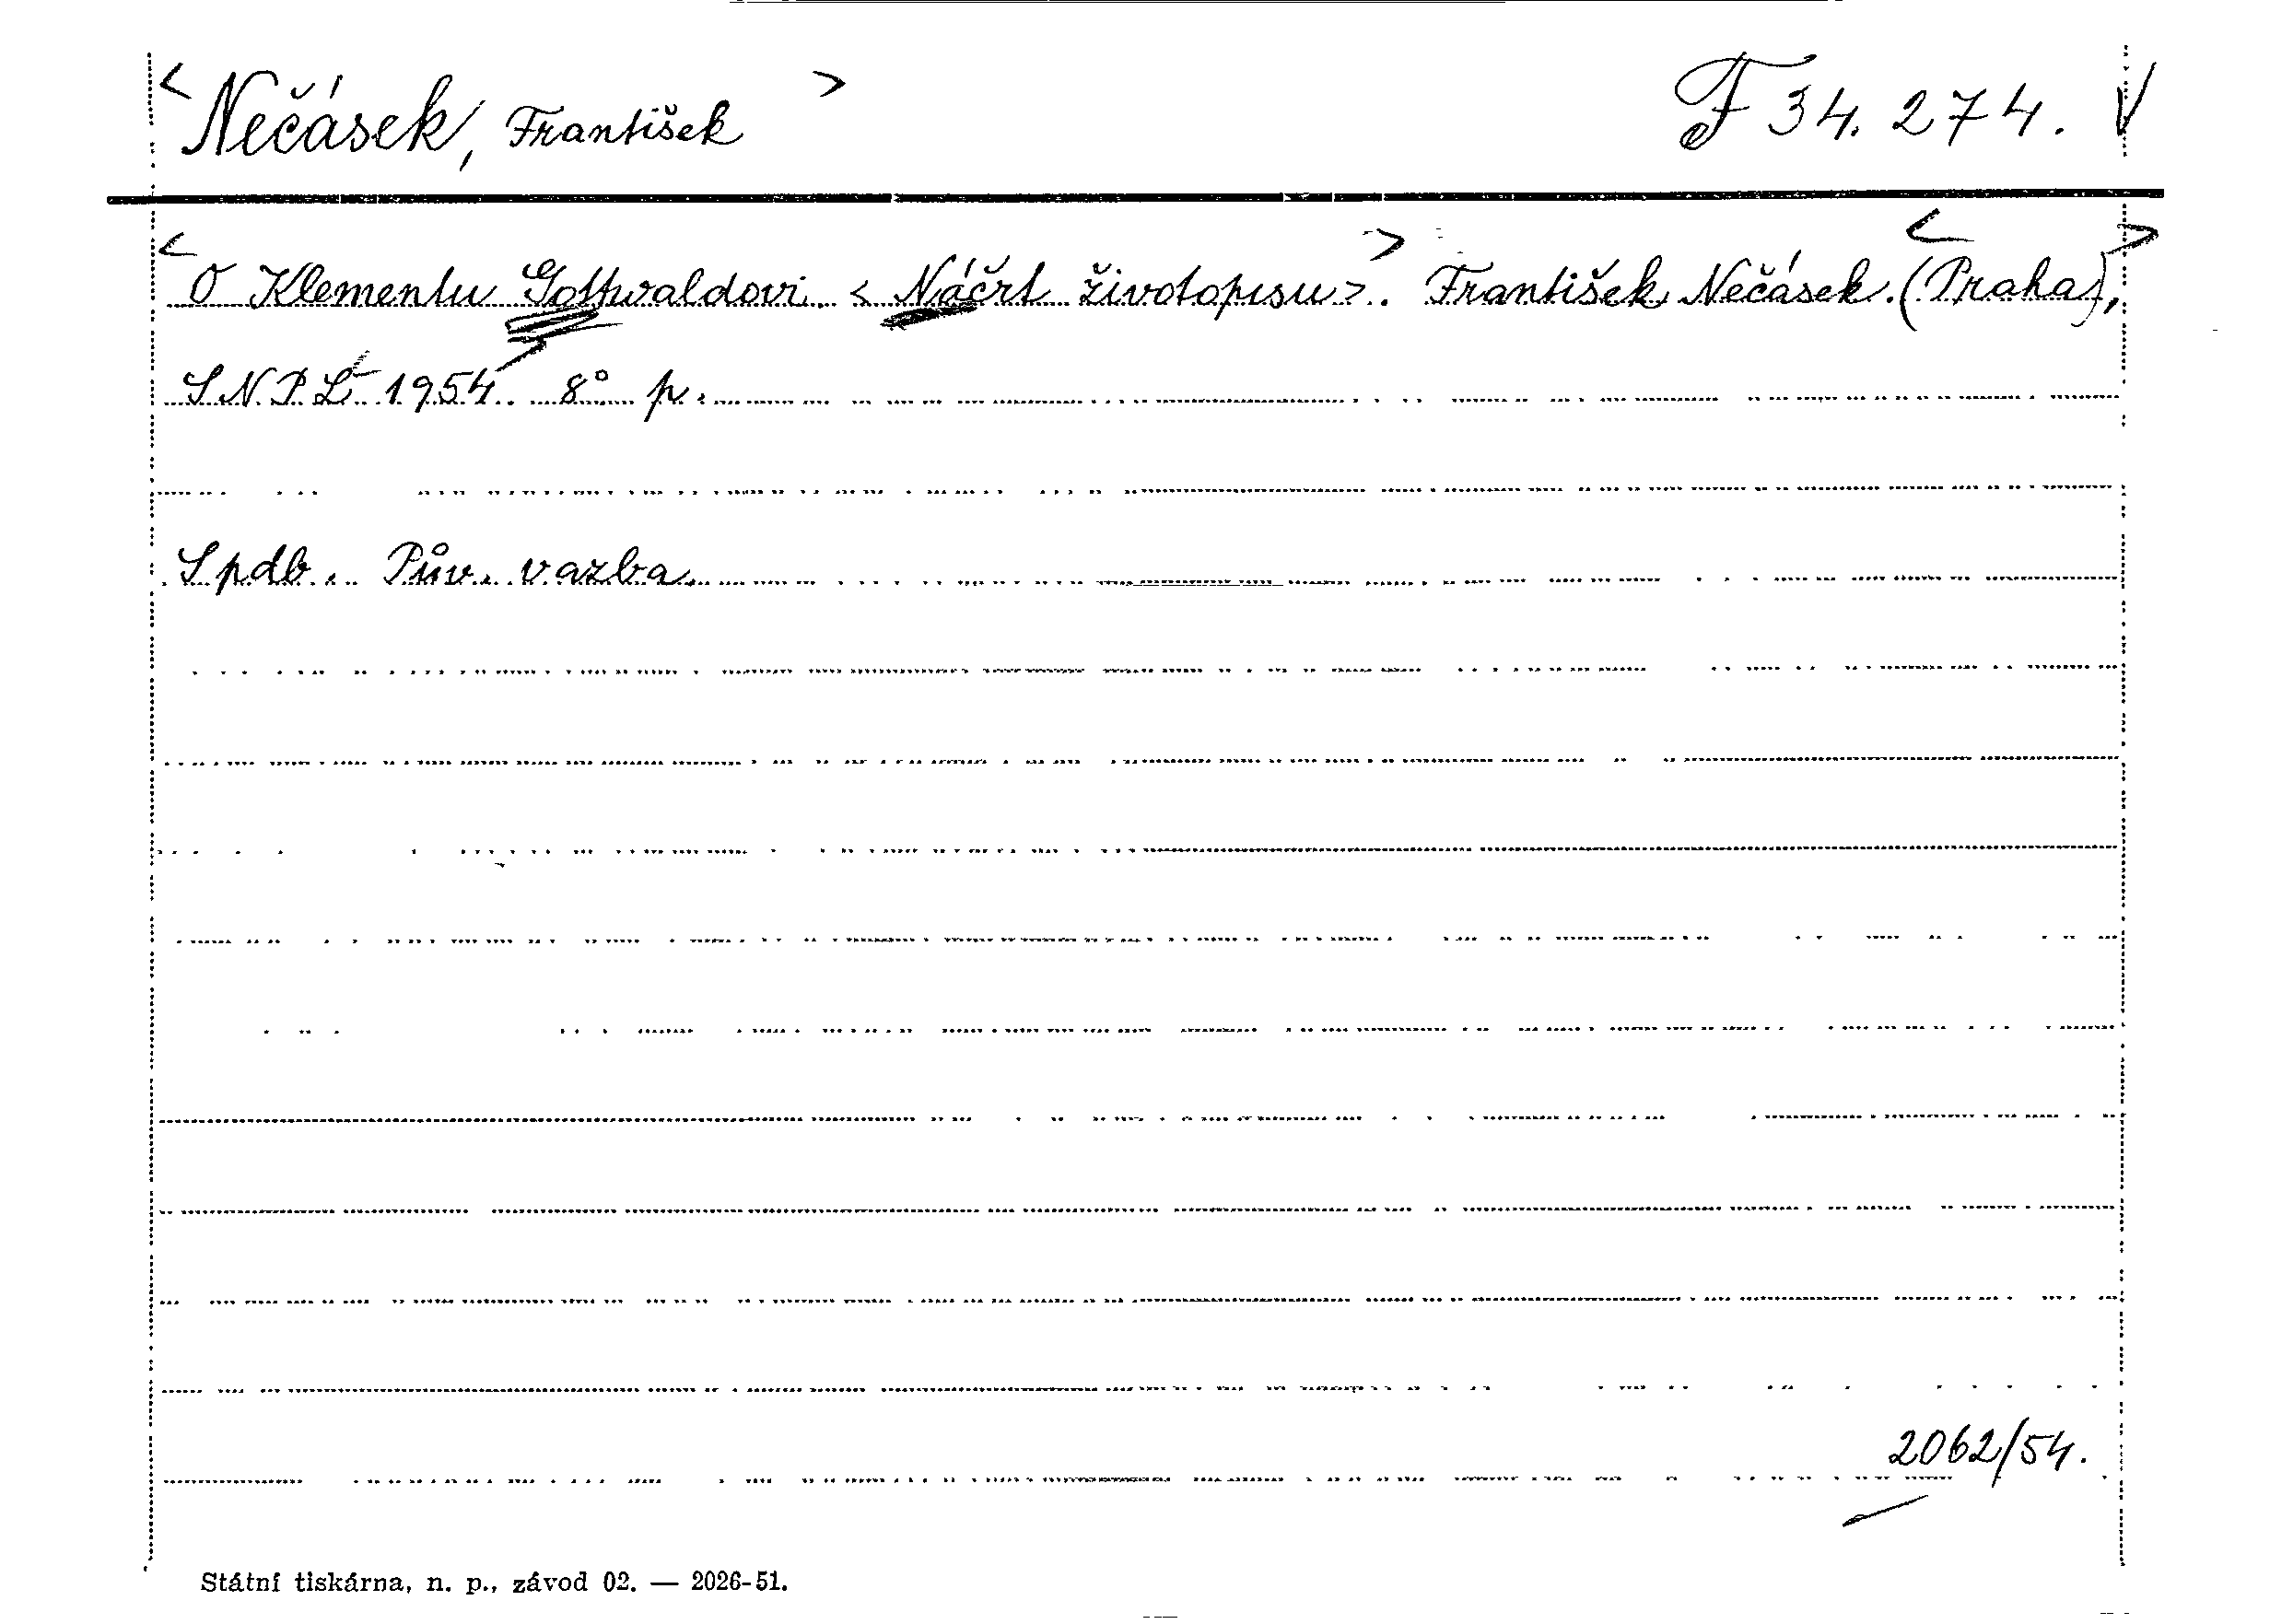 < Nečásek, František > F 34.274. V
< O Klementu Gottwaldovi. < Náčrt životopisu > > . František Nečásek. < (Praha), >
SNPL 1954. 8° p.
Spdb. Pův. vazba.
2062/54.
Státní tiskárna, n. p., závod 02. — 2026-51.